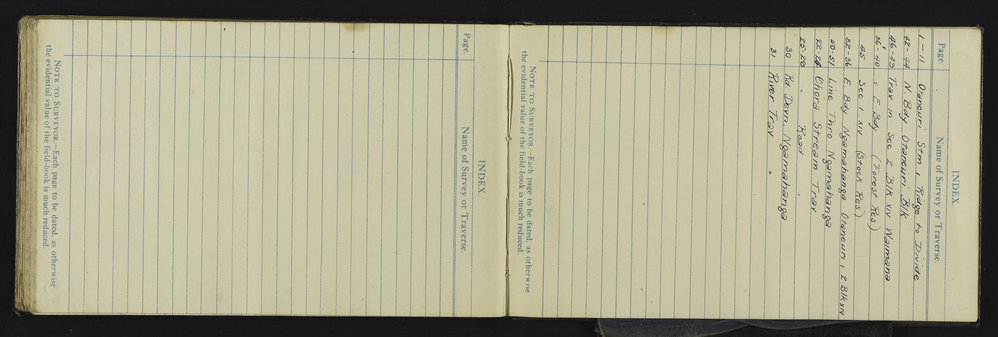 INDEX.
Page. Name of Survey or Traverse.
1-11 Otaneuri Stm & Ridge to Divide
42-44 N. Bdy Otaneuri Blk
46-49 Trav in Sec 2 Blk XIV Waimana
36-40 & E. Bdy (Forest Res)
45 Sec 1 XIV (Stock Res)
32-36 E. Bdy Ngamahanga Otaneuri & 2 Blk XIV
50-51 Line Thro Ngamahanga
22-28 Ohora Stream Trav.
28-29 " Road "
30 Rd. Devn. Ngamahanga
31 River Trav "
NOTE TO SURVEYOR.—Each page to be dated, as otherwise
the evidential value of the field-book is much reduced.
INDEX.
Page. Name of Survey or Traverse.
NOTE TO SURVEYOR.—Each page to be dated, as otherwise
the evidential value of the field-book is much reduced.